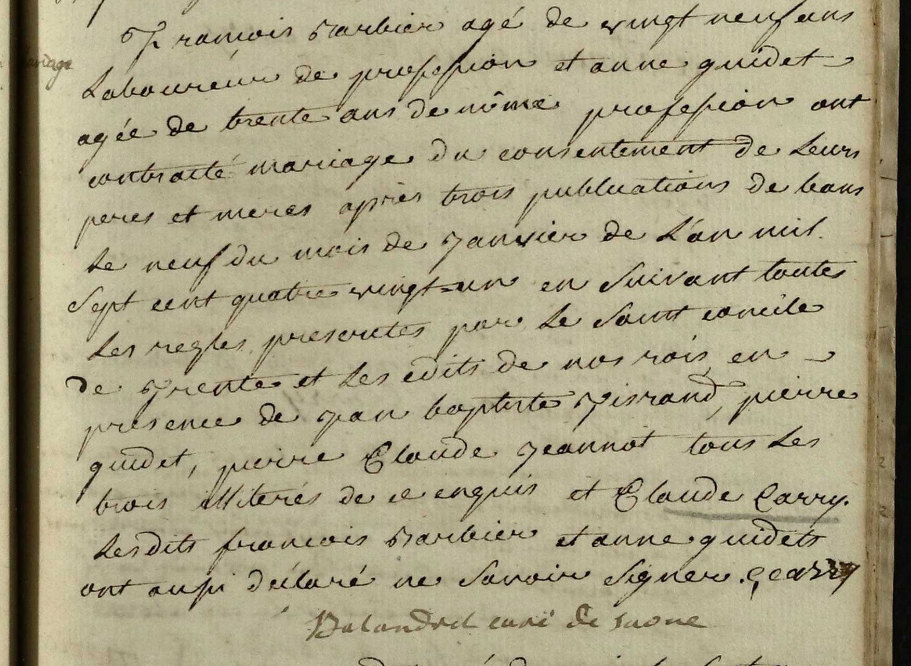 mariage
François Barbier agé de vingt neuf ans
Laboureur de profession et anne guidet
agée de trente ans de même profession ont
contracté mariage du consentement de Leurs
peres et meres après trois publications de bans
Le neuf du mois de janvier de L'an mil
Sept cent quatre vingt=un en Suivant toutes
Les regles prescrites par Le Saint concile
de Trente et Les edits de nos rois en
présence de jean baptiste pierre
guidet, pierre Claude jeannot tous Les
trois illiterés de ce enquis et Claude Carry.
Lesdits francois Barbier et anne guidets
ont aussi déclaré ne Savoir Signer. C carry
curé de saone